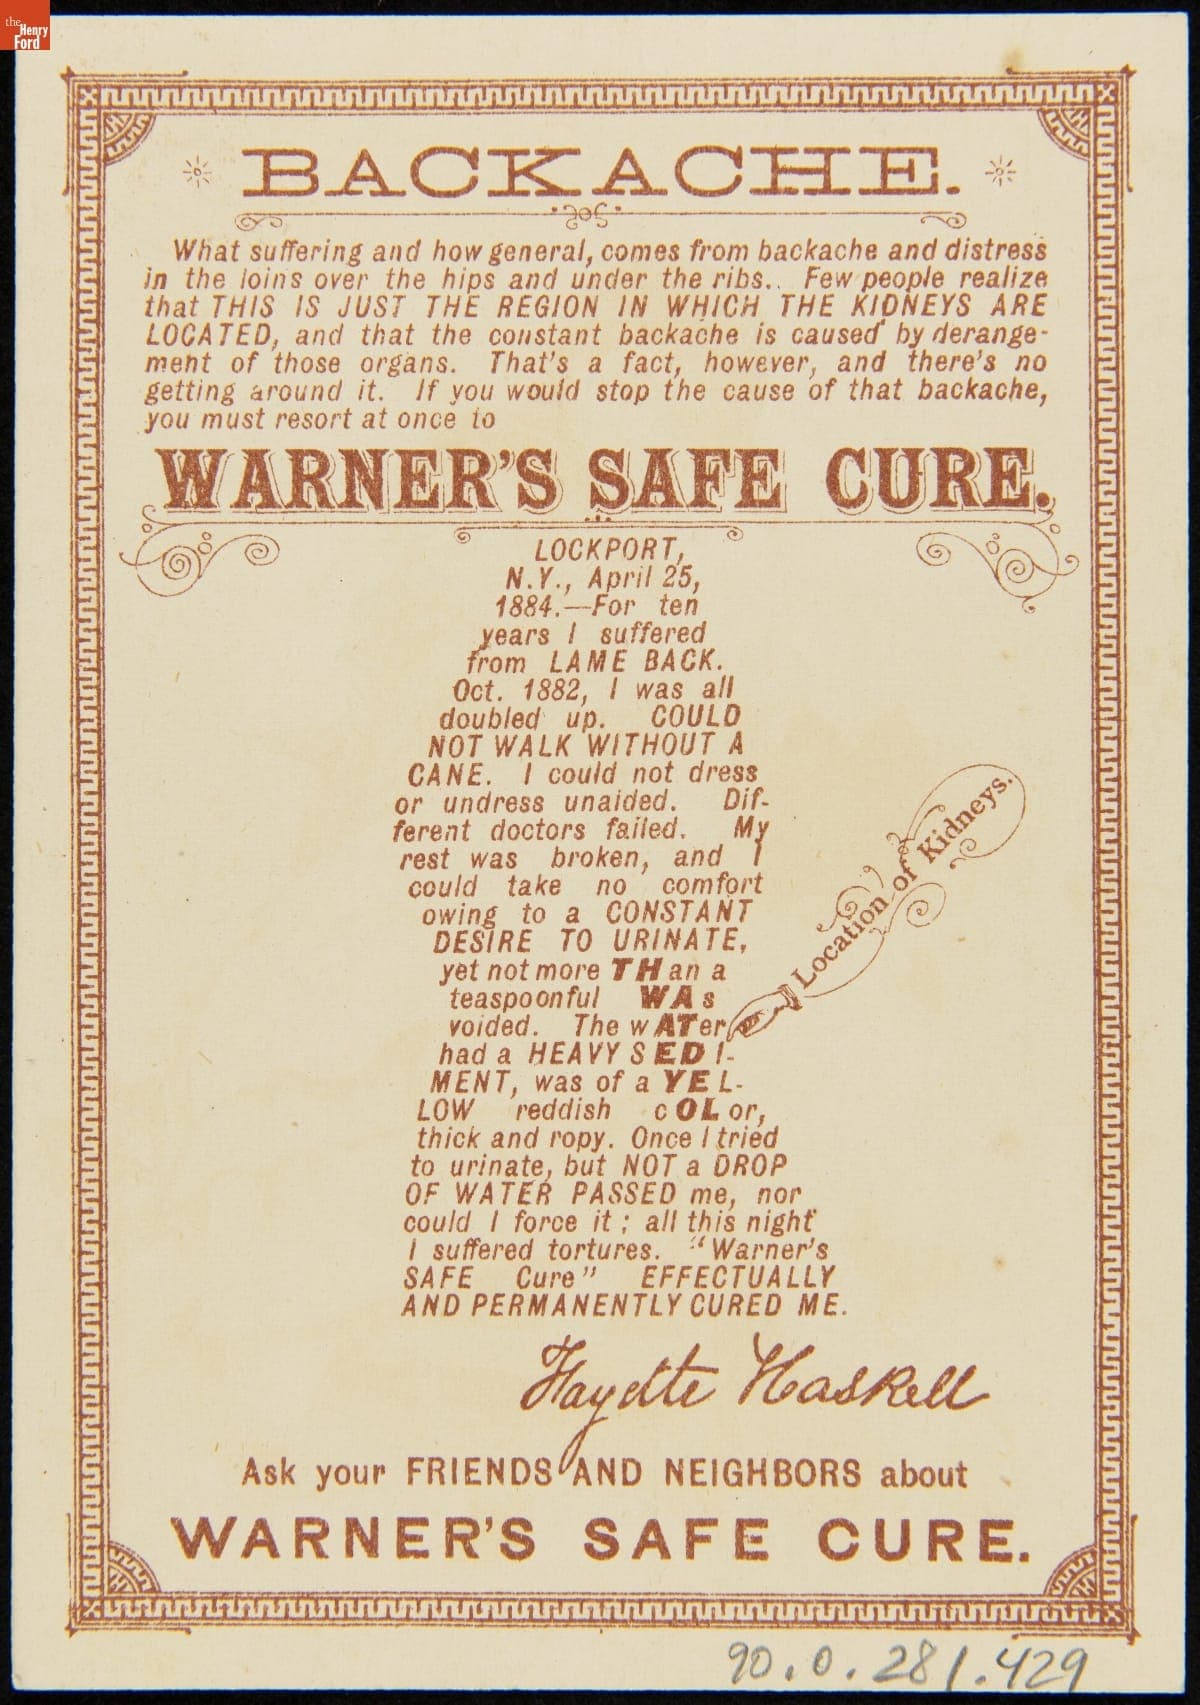 the
Henry
Ford
BACKACHE.
What suffering and how general, comes from backache and distress
in the loins over the hips and under the ribs.. Few people realize
that THIS IS JUST THE REGION IN WHICH THE KIDNEYS ARE
LOCATED, and that the constant backache is caused by derange-
ment of those organs. That's a fact, however, and there's no
getting around it. If you would stop the cause of that backache,
you must resort at once to
WARNER'S SAFE CURE.
LOCKPORT,
N.Y., April 25,
1884.—For ten
years I suffered
from LAME BACK.
Oct. 1882, I was all
doubled up. COULD
NOT WALK WITHOUT A
CANE. I could not dress
or undress unaided. Dif-
ferent doctors failed. My
rest was broken, and I
could take no comfort
owing to a CONSTANT
DESIRE TO URINATE,
yet not more THan a
teaspoonful WAs
voided. The wATer
had a HEAVY SEDI-
MENT, was of a YEL-
LOW reddish cOLor,
thick and ropy. Once I tried
to urinate, but NOT a DROP
OF WATER PASSED me, nor
could I force it; all this night
I suffered tortures. "Warner's
SAFE Cure" EFFECTUALLY
AND PERMANENTLY CURED ME.
Location of Kidneys.
Fayette Haskell
Ask your FRIENDS AND NEIGHBORS about
WARNER'S SAFE CURE.
90.0.281.429